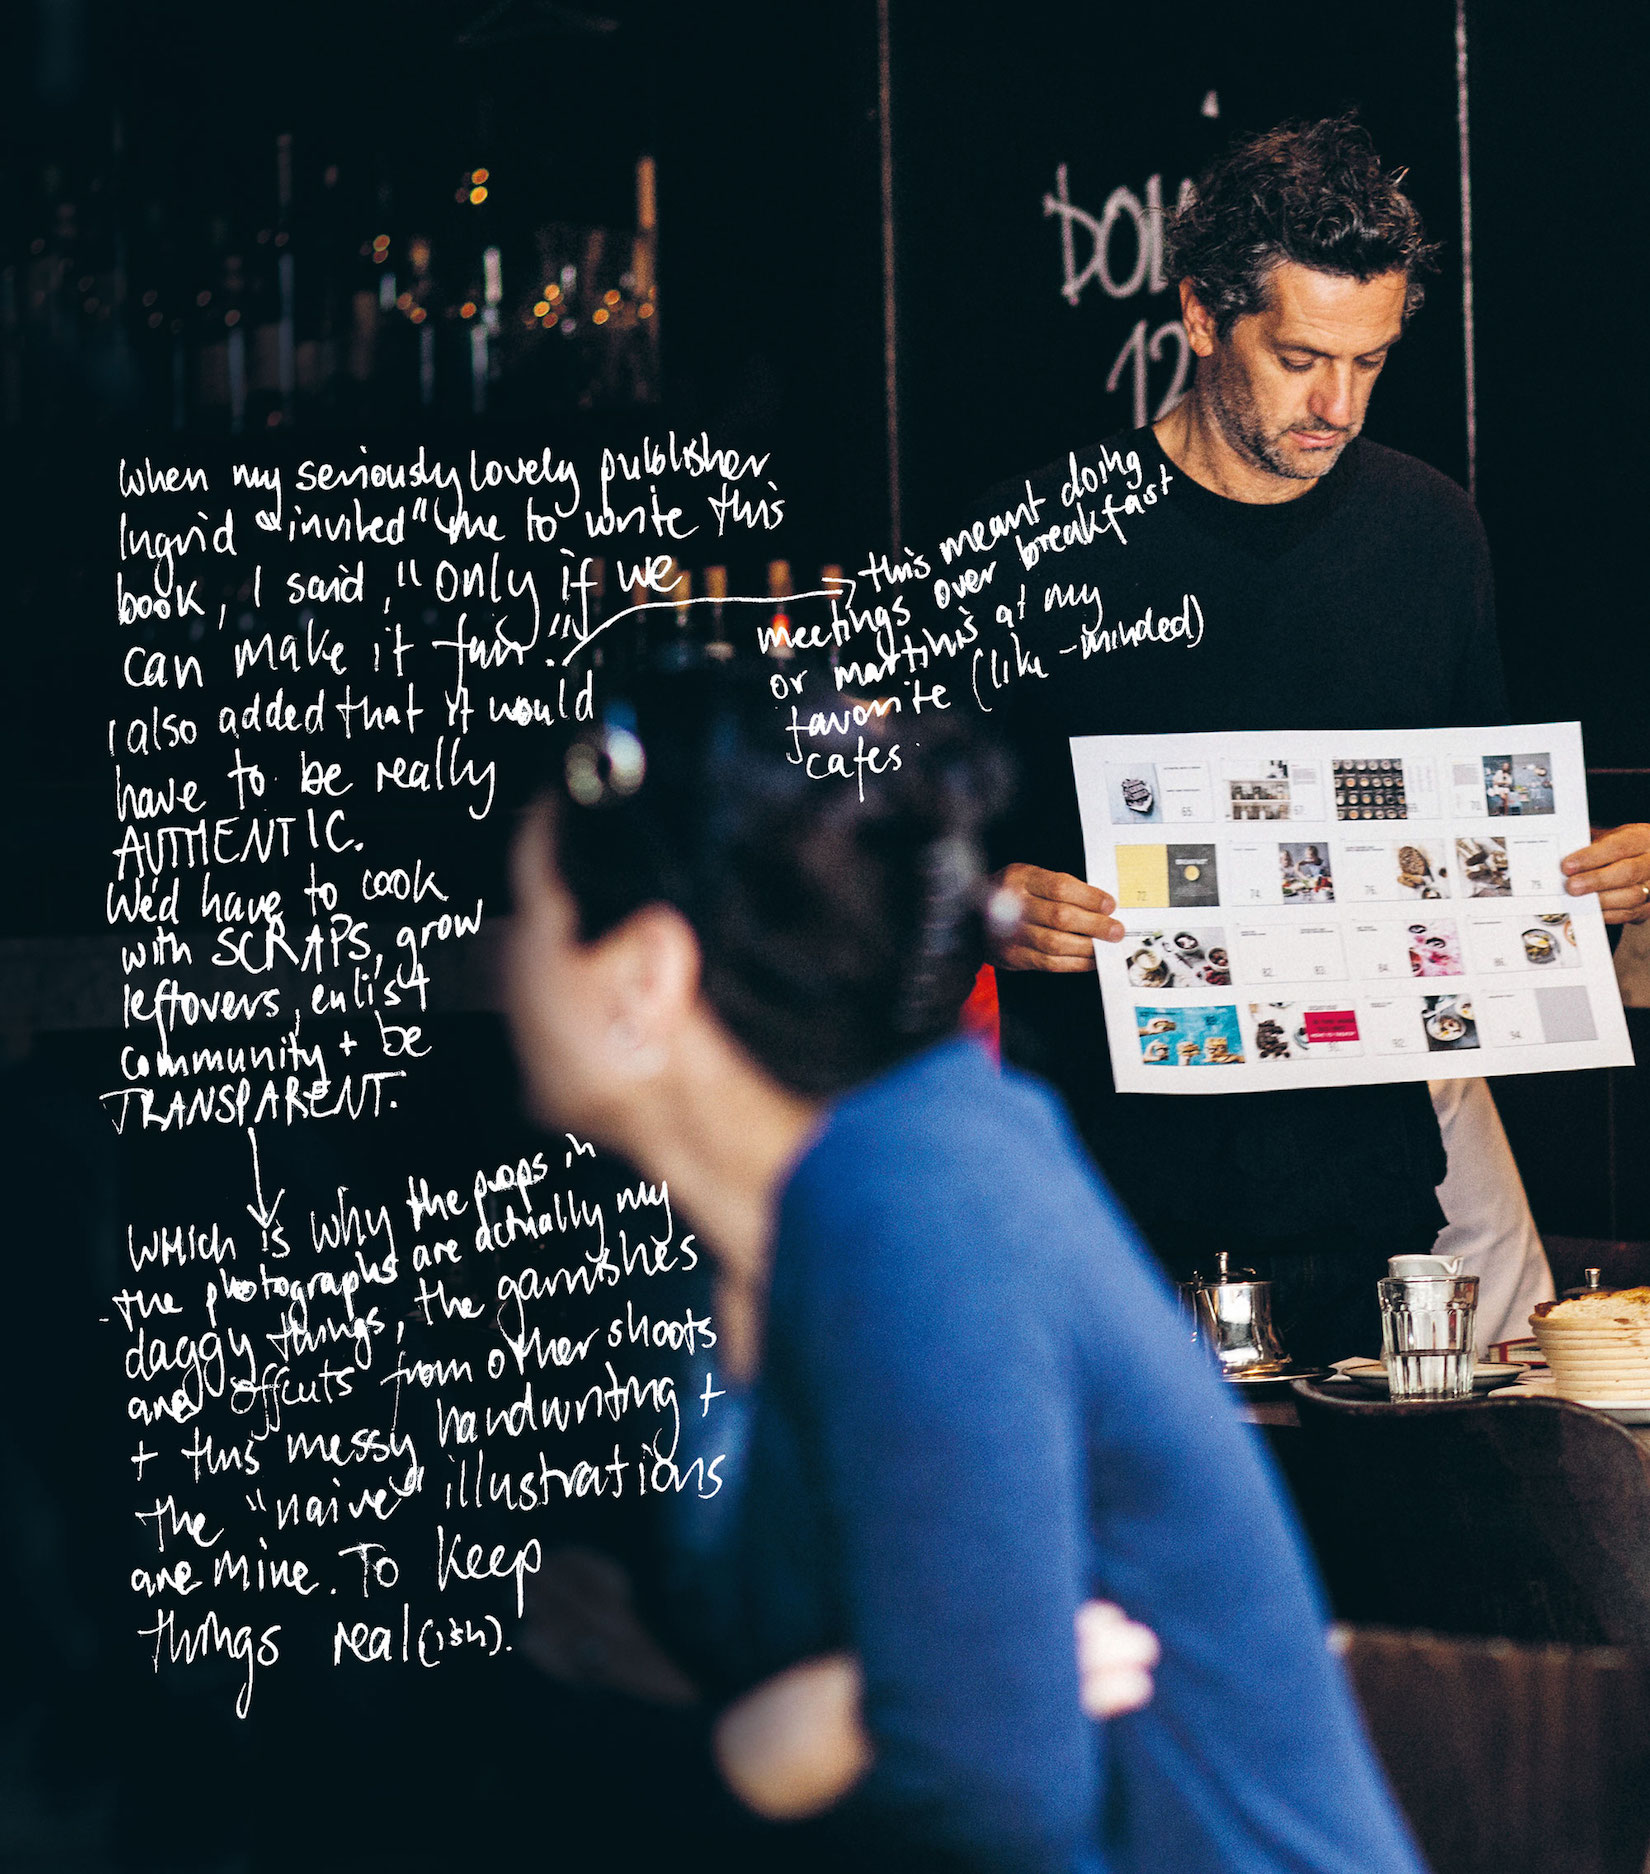 When my seriously lovely publisher
Ingrid "invited" me to write this
book, I said, "only if we
can make it fun."
I also added that it would
have to be really
AUTHENTIC.
We'd have to cook
with SCRAPS, grow
leftovers, enlist
community + be
TRANSPARENT.
which is why the props in
the photographs are actually my
daggy things, the garnishes
are offcuts from other shoots
+ this messy handwriting +
the "naive" illustrations
are mine. To keep
things real(ish).
this meant doing
meetings over breakfast
or martinis at my
favorite (like-minded)
cafes.
12
65.
67.
70.
72.
74.
76.
79.
82.
83.
84.
86.
92.
94.